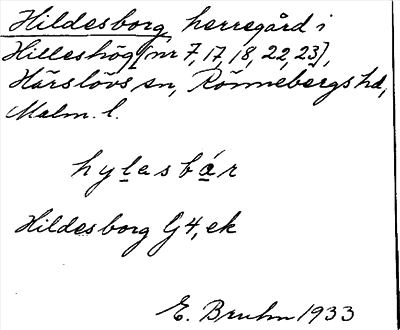 Hildesborg herregård i
Hilleshög [nr 7, 17, 18, 22, 23],
Härslövs sn, Rönnebergs hd,
Malm. l.
hylasbár
Hildesborg G4, ek
E. Bruhn 1933